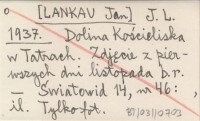 o [LANKAU Jan] J. L.
1937. Dolina Kościeliska
w Tatrach. Zdjęcie z pier-
wszych dni listopada b.r.
— Światowid 14, nr 46:
il. Tylko fot.
87/031/0703